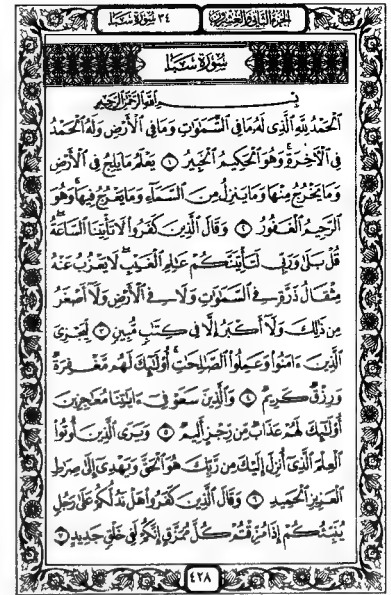 الجزء الثاني والعشرون ٣٤ سورة سبأ
سُورَةُ سَبَإٍ
بِسْمِ اللَّهِ الرَّحْمَٰنِ الرَّحِيمِ
ٱلْحَمْدُ لِلَّهِ ٱلَّذِى لَهُۥ مَا فِى ٱلسَّمَٰوَٰتِ وَمَا فِى ٱلْأَرْضِ وَلَهُ ٱلْحَمْدُ
فِى ٱلْأَخِرَةِ ۚ وَهُوَ ٱلْحَكِيمُ ٱلْخَبِيرُ ١ يَعْلَمُ مَا يَلِجُ فِى ٱلْأَرْضِ
وَمَا يَخْرُجُ مِنْهَا وَمَا يَنزِلُ مِنَ ٱلسَّمَآءِ وَمَا يَعْرُجُ فِيهَا ۚ وَهُوَ
ٱلرَّحِيمُ ٱلْغَفُورُ ٢ وَقَالَ ٱلَّذِينَ كَفَرُوا۟ لَا تَأْتِينَا ٱلسَّاعَةُ ۖ
قُلْ بَلَىٰ وَرَبِّى لَتَأْتِيَنَّكُمْ عَٰلِمِ ٱلْغَيْبِ ۖ لَا يَعْزُبُ عَنْهُ
مِثْقَالُ ذَرَّةٍ فِى ٱلسَّمَٰوَٰتِ وَلَا فِى ٱلْأَرْضِ وَلَآ أَصْغَرُ
مِن ذَٰلِكَ وَلَآ أَكْبَرُ إِلَّا فِى كِتَٰبٍ مُّبِينٍ ٣ لِّيَجْزِىَ
ٱلَّذِينَ ءَامَنُوا۟ وَعَمِلُوا۟ ٱلصَّٰلِحَٰتِ ۚ أُو۟لَٰٓئِكَ لَهُم مَّغْفِرَةٌ
وَرِزْقٌ كَرِيمٌ ٤ وَٱلَّذِينَ سَعَوْ فِىٓ ءَايَٰتِنَا مُعَٰجِزِينَ
أُو۟لَٰٓئِكَ لَهُمْ عَذَابٌ مِّن رِّجْزٍ أَلِيمٌ ٥ وَيَرَى ٱلَّذِينَ أُوتُوا۟
ٱلْعِلْمَ ٱلَّذِىٓ أُنزِلَ إِلَيْكَ مِن رَّبِّكَ هُوَ ٱلْحَقَّ وَيَهْدِىٓ إِلَىٰ صِرَٰطِ
ٱلْعَزِيزِ ٱلْحَمِيدِ ٦ وَقَالَ ٱلَّذِينَ كَفَرُوا۟ هَلْ نَدُلُّكُمْ عَلَىٰ رَجُلٍ
يُنَبِّئُكُمْ إِذَا مُزِّقْتُمْ كُلَّ مُمَزَّقٍ إِنَّكُمْ لَفِى خَلْقٍ جَدِيدٍ ٧
٤٢٨